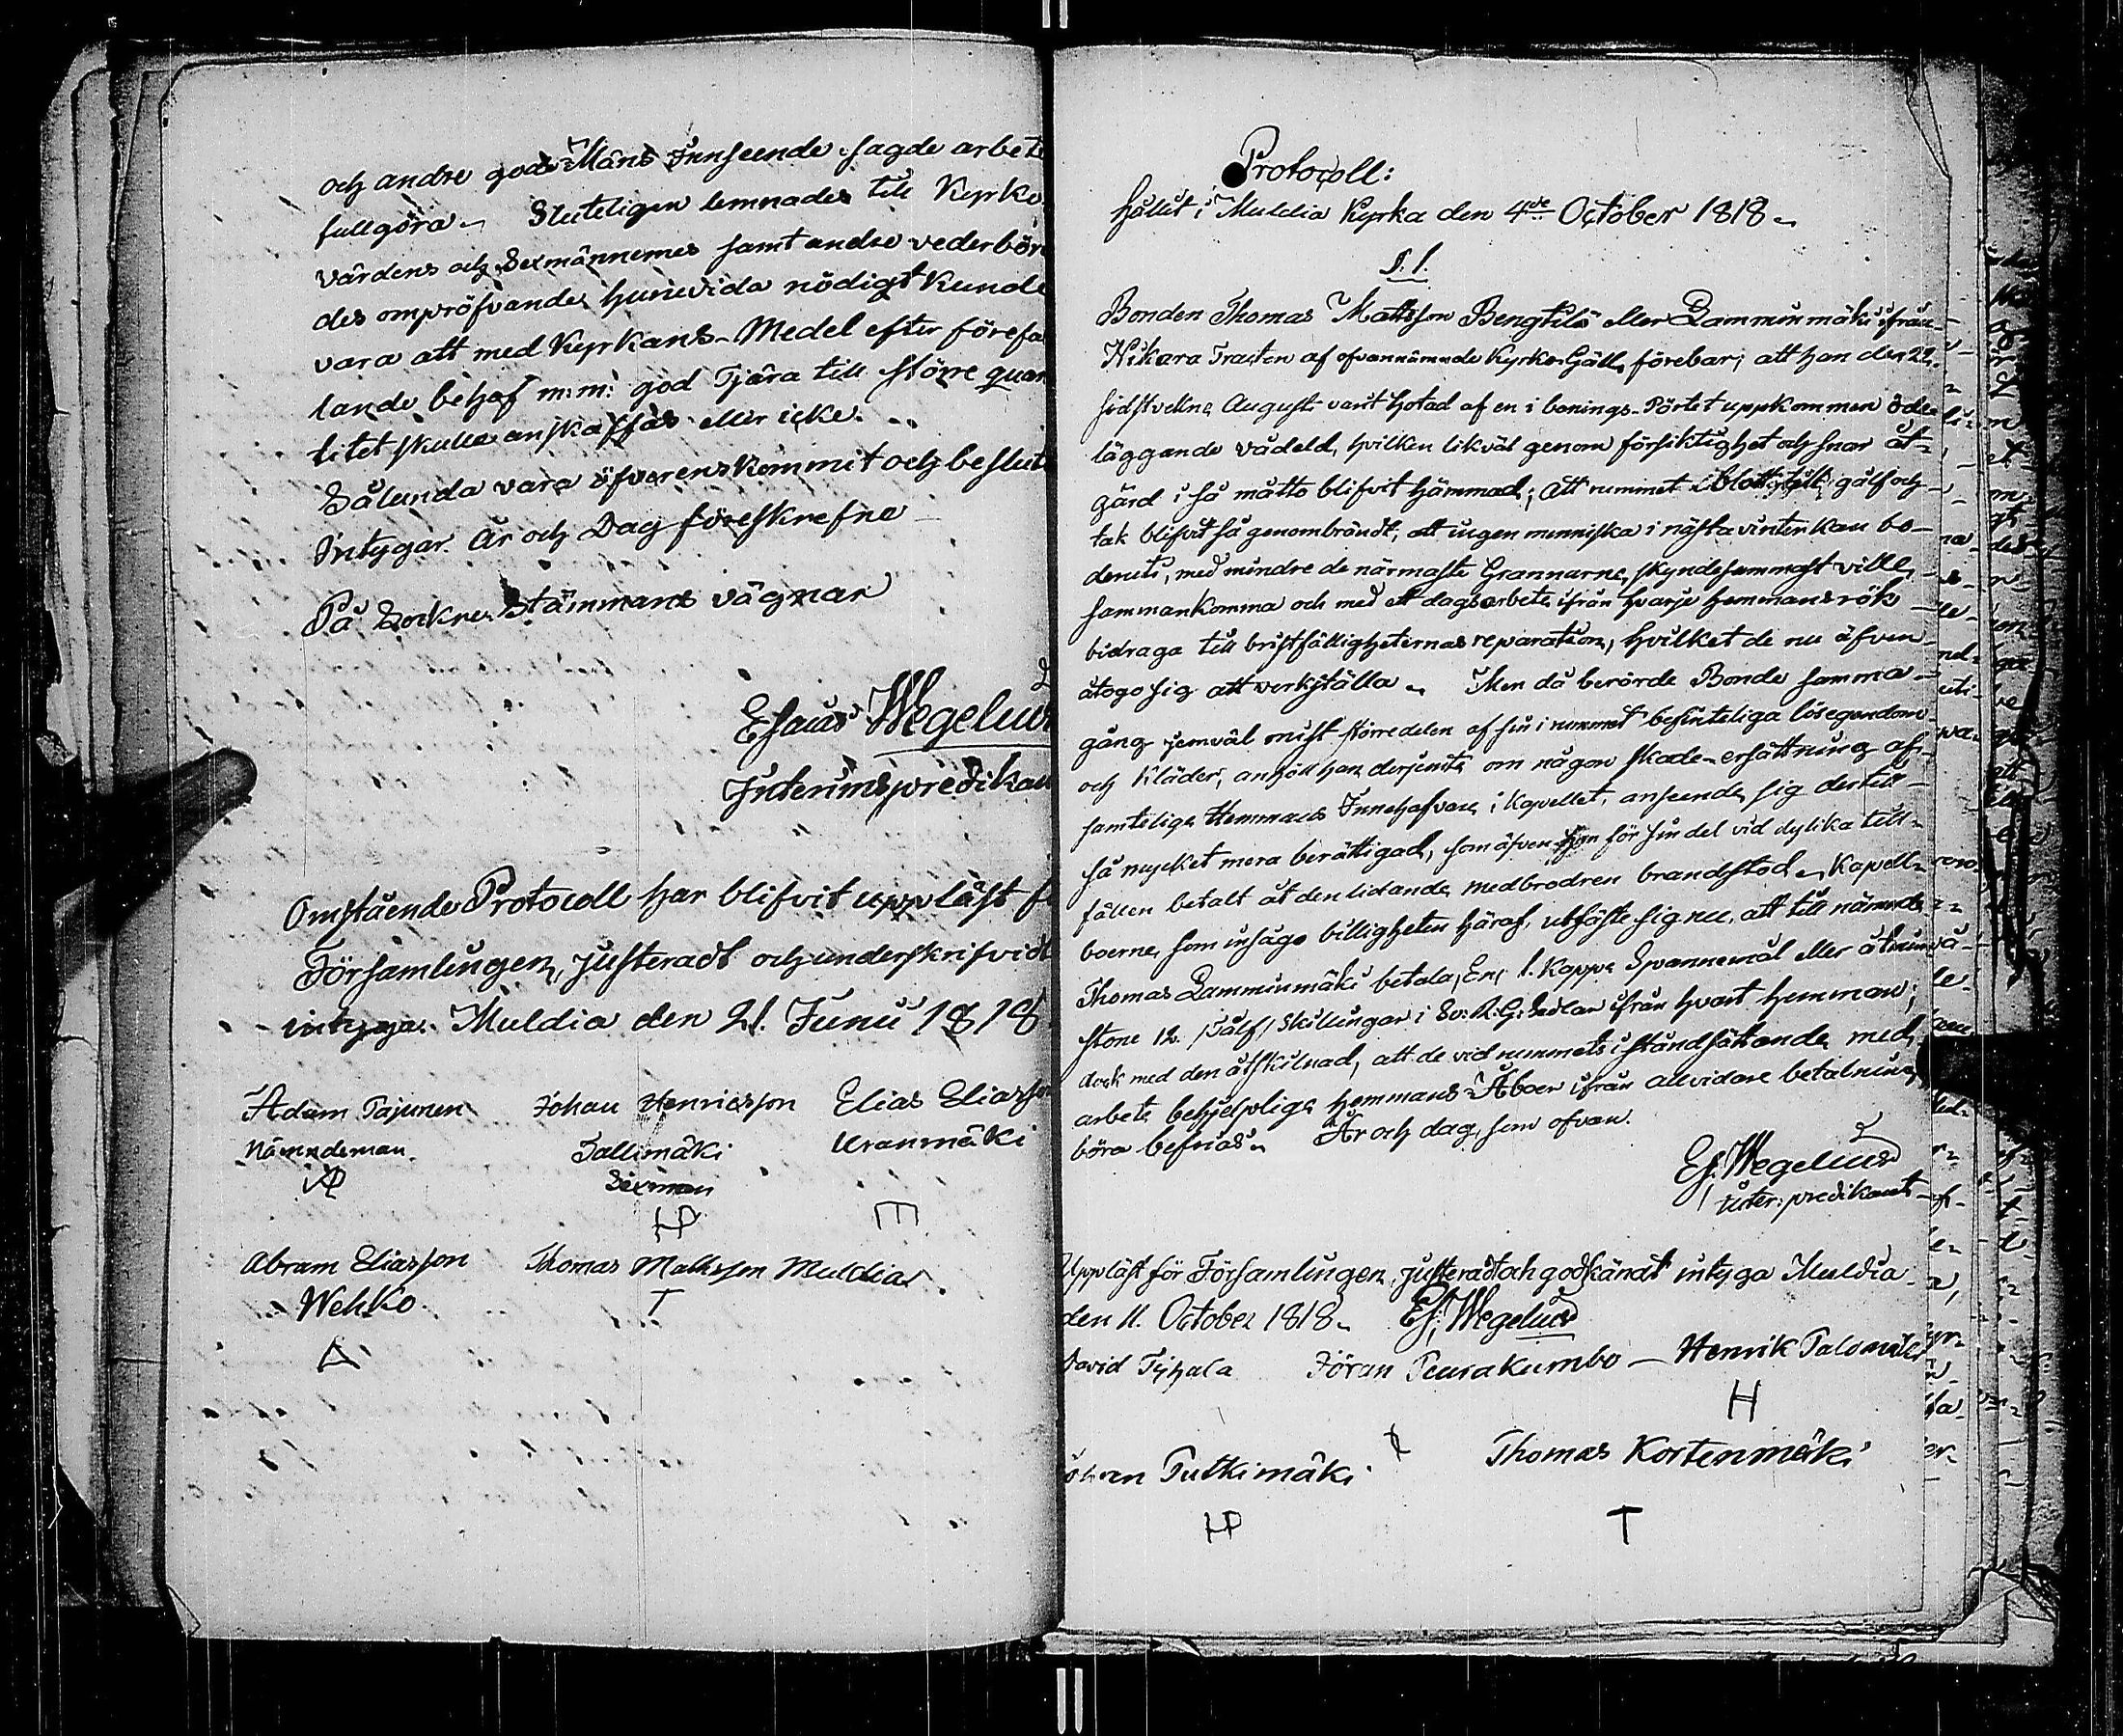 och andre gode Mäns Innseende sagde arbete
fullgöra. Sluteligen lemnades till Kyrko
värdens och Sexmännernes samt andre vederböra
des ompröfvande, huruvida nödigt kunde
vara att med Kyrkans Medel efter förefal
lande behof m:m: god Tjära till större quan
titet skulle anskaffas eller icke.
Sålunda vara öfverenskommit och beslut
Intygar. År och Dag föreskrefne
På Sockne Stämmans vägnar
Esaias Wegelius
Interimspredikan
Omstående Protocoll har blifvit uppläst f
Församlingen, justeradt och underskrifvidt
intyga. Muldia den 21. Junii 1818
Adam Pajunen Johan Henricsson Elias Eliasson
Nämndeman Tallimäki Uranmäki
Sexman
Abram Eliasson Thomas Mattsson Muldia
Wehko T
A
Protocoll:
hållit i Muldia Kyrka den 4de October 1818.
§. 1.
Bonden Thomas Mattsson Bengtilä eller Lamminmäki ifrån
Kikara Tracten af ofvannämnde Kyrko Gäll, förebar; att han den 22.
sidstvekne Augusti varit hotad af en i bonings-Pörtet uppkommen öde
läggande vådeld, hvilken likväl genom försiktighet och snar åt-
gärd i så måtto blifvit hämmad; att rummet blott till gålf och
tak blifvit så genombrändt, att ingen menniska i nästa vinter kan bo
deruti, med mindre de närmaste Grannarne, skyndesammast ville
sammankomma och med ett dagsarbete ifrån hvarje hemmansrök
bidraga till bristfälligheternas reparation, hvilket de nu äfven
åtogo sig att verkställa. Men då berörde Bonde samma
gång jemväl mist större delen af sin i rummet befinteliga lösegendom
och Kläder, anhöll han derjemte om någon skade-ersättning af
samtelige Hemmans Innehafvare i Kapellet, anseende sig dertill
så mycket mera berättigad, som äfven han för sin del vid dylika till-
fällen betalt åt den lidande medbrodren brandstod. Kapell-
boerne, som insågo billigheten häraf, utfäste sig nu, att till nämnde
Thomas Lamminmäki betala, En, 1. Kappe Spannemål eller åtmin
stone 12. /Tålf/ Skillingar i Sv: R: G: Sedlar ifrån hvart hemman;
dock med den åtskilnad, att de vid rummets iståndsättande med
arbete behjelpliga hemmans Åboer ifrån all vidare betalning
böra befrias. År och dag, som ofvan.
Es. Wegelius
Inter: predikant
Uppläst för Församlingen, justeradt och godkändt intyga Muldia
den 11. October 1818. Es. Wegelius
David Tyhala Jöran Peurakumbo Henrik Palomäki
H
Johan Putkimäki Thomas Kortenmäki
T